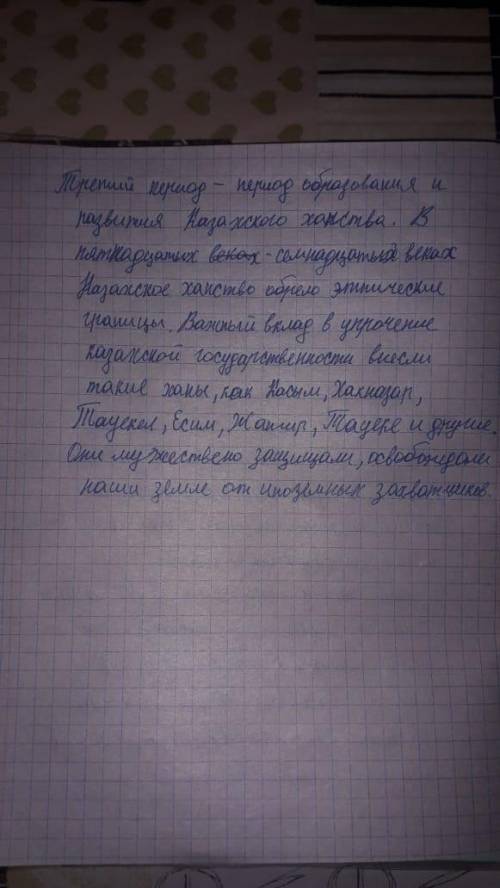 Третий период - период образования и
развития Казахского ханства. В
пятнадцатых веках - семнадцатых веках
Казахское ханство обрело этнические
границы. Важный вклад в упрочение
казахской государственности внесли
такие ханы, как Касым, Хакназар,
Тауекел, Есим, Жангир, Тауеке и другие.
Они мужествено защищали, освобождали
наши земле от иноземных захватчиков.